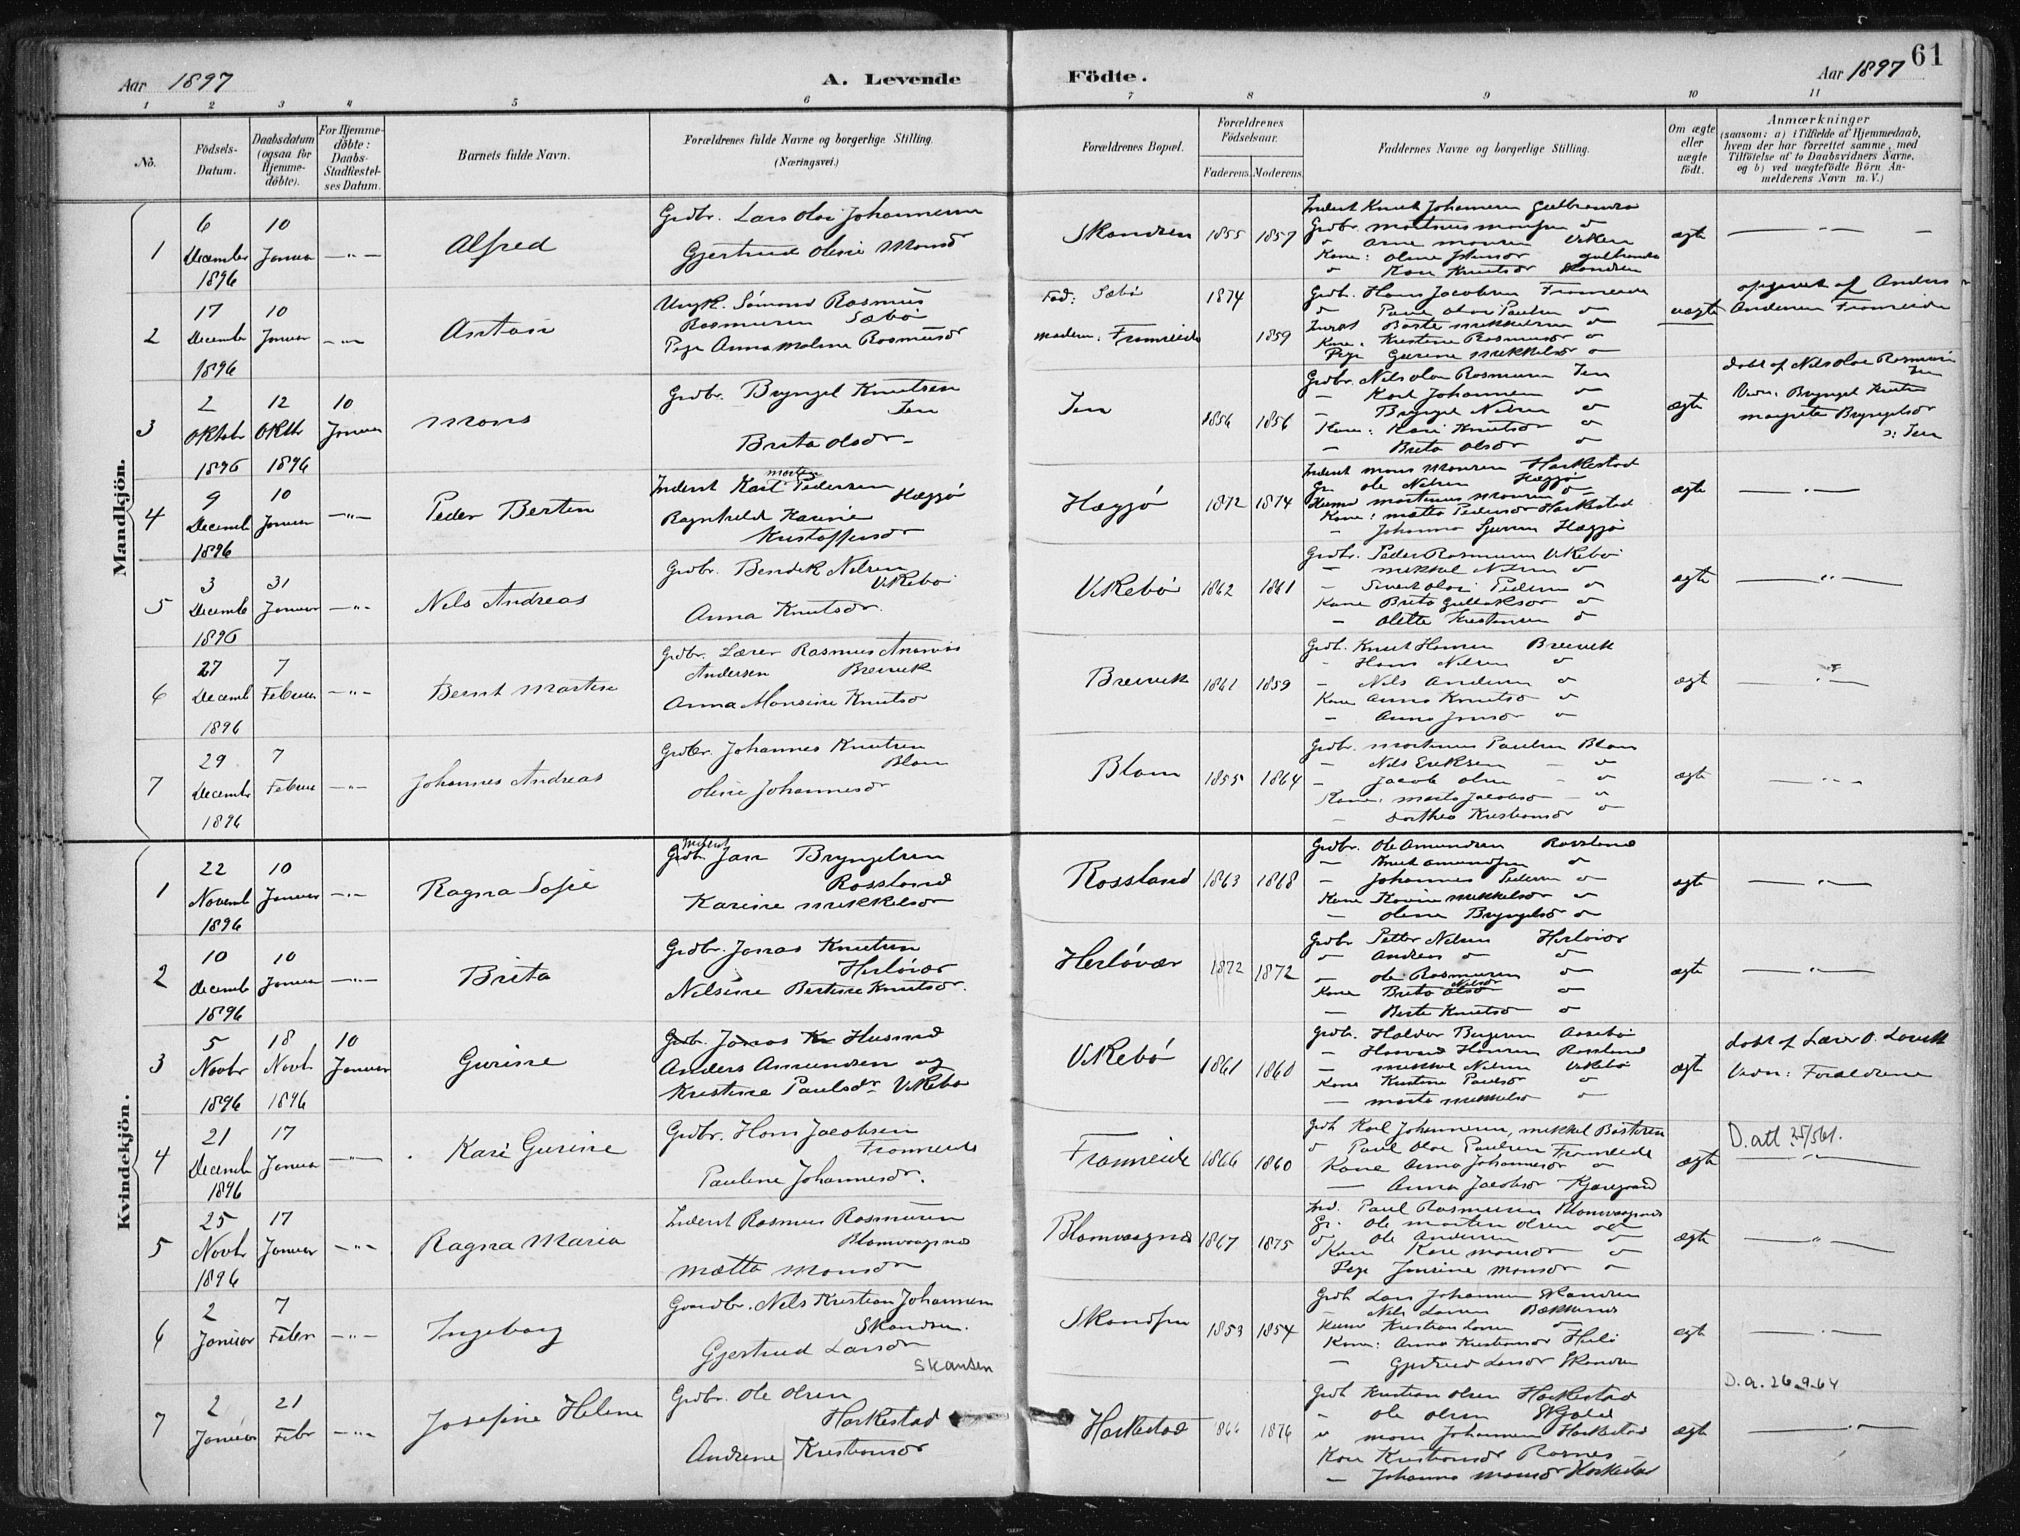 61
Aar 1897
A. Levende Födte.
Aar 1897
1 2 3 4 5 6 7 8 9 10 11
No.
Födsels-Datum.
Daabsdatum (ogsaa for Hjemme-döbte).
For Hjemme-döbte: Daabs-Stadfæstel-ses Datum.
Barnets fulde Navn.
Forældrenes fulde Navne og borgerlige Stilling. (Næringsvei.)
Forældrenes Bopæl.
Forældrenes Födselsaar.
Faderens. Moderens.
Faddernes Navne og borgerlige Stilling.
Om ægte eller uægte födt.
Anmærkninger
(saasom: a) i Tilfælde af Hjemmedaab,
hvem der har forrettet samme, med
Tilföielse af to Daabsvidners Navne,
og b) ved uægtefödte Börn An-
melderens Navn m. V.)
Mandkjön.
1
6 December 1896
10 Januar
Alfred
Grdbr. Lars Olai Johannesen
Gjertrud Oline Monsdr
Skandsen
1855 1857
ægte
2
17 Decembr 1896
10 Januar
Anton
Ungk. Simond Rasmus
Rasmusen Sæbö
Pige Anna Malene Rasmusdr
Fad: Sæbö
Modern: Fromreide
1874
1859
Grdb. Hans Jacobsen Fromreide
Paul Olai Paulsen
Kone: Kristine Rasmusdr
Pige Gurine Mikkelsdr
uægte
opgivet af Anders
Andersen Fromreide
3
2 Oktobr 1896
12 Oktbr 1896
10 Januar
Mons
Grdbr. Bryngel Knutsen
Brita Olsdr
1856 1856
Grdbr. Nils Olai Rasmusen
Karl Johannesen
Bryngel Nilsen
Kone: Kari Knutsdr
Brita Olsdr
ægte
döbt af Nils Olai Rasmusen
Vidn: Bryngel Knutsen
Margreta Bryngelsdr
4
9 Decemb 1896
10 Januar
Peder Berten
Inderst Karl Morten Pedersen
Hægjö
Ragnhild Karine
Kristoffersdr
Hægjö
1872 1874
Inderst Mons Monsen Harkestad
Gr. Ole Nilsen Hægjö
Martinus Monsen
Kone: Metta Pedersdr Harkestad
Johanna Hægjö
ægte
5
3 Decemb 1896
31 Januar
Nils Andreas
Grdbr. Bendik Nilsen
Vikebö
Anna Knutsdr.
Vikebö
1862 1861
Grdbr. Peder Rasmusen Vikebö
Mikkel Nilsen
Sivert Olai Pedersen
Kone Brita Gullaksdr
Olette Kristensen
ægte
6
27 Decemb 1896
7 Februar
Bernt Martin
Grdbr. Lærer Rasmus Ananias
Andersen Breivik
Anna Monsine Knutsdr
Breivik
1861 1859
Grdb. Knut Hansen Breivik
Hans Nilsen
Nils Andersen
Kone Anna Knutsdr
Anna Jonsdr
ægt
7
29 Decembr 1896
7 Februar
Johannes Andreas
Grdbr. Johannes Knutsen
Blom
Oline Johannesdr
Blom
1855 1864
Grdb. Martinus Paulsen Blom
Nils Eriksen
Jacob Olsen
Kone: Marta Jacobsdr
Dorthea Kristiansdr
ægte
Kvindekjön.
1
22 Novemb 1896
10 Januar
Ragna Sofie
Grdb. Inderst Jan Bryngelsen
Rossland
Karine Mikkelsdr
Rossland
1863 1868
Grdbr. Ole Amundsen Rossland
Knut Amundsen
Johannes Pedersen
Kone Karine Mikkelsdr
Oline Bryngelsdr
ægte
2
10 Decemb 1896
10 Januar
Brita
Grdbr. Jonas Knutsen
Herlövær
Nilsine Bertine Knutsdr.
Herlövær
1872 1872
Grdbr Petter Nilsen Herlövær
Anders
Ole Rasmusen
Kone Brita Nilsdr
Berte Knutsdr
ægte
3
5 Novbr 1896
18 Novbr 1896
10 Januar
Gurine
Grdb. Jonas Kn Husmd
Anders Amundsen og
Kristine Paulsdr Vikebö
Vikebö
1861 1860
Grdbr. Haldor Aasebö
Haavard Hansen Rossland
Mikkel Nilsen Vikebö
Kone Kristine Paulsdr
Marta Mikkelsdr
ægte
döbt af Lærer O. Lavik
Vidn: Forældrene
4
21 Decemb 1896
17 Januar
Kari Gurine
Grdbr. Hans Jacobsen
Fromreide
Pauline Johannesdr.
Fromreide
1866 1860
Grdb Karl Johannesen, Mikkel Bastesen
Paul Olai Paulsen Fromreide
Kone Anna Johannesdr
Anna Jacobsdr
ægte
D. att 25/5 61.
5
25 Novbr 1896
17 Januar
Ragna Maria
Inderst Rasmus Rasmusen
Blomvaagnæs
Mætta Monsdr
Blomvaagnæs
1867 1875
Ind. Paul Rasmusen Blomvaagnæs
Gr. Ole Morten Olsen
Ole Andersen
Kone Kari Monsdr
Pige Jensine Monsdr
ægte
6
2 Januar
7 Febr
Ingeborg
Gaardbr. Nils Kristian Johannesen
Skandsen.
Gjertrud Larsdr
Skansen
Skandsen
1853 1854
Grdb Lars Johannesen Skandsen
Nils Larsen
Kristian Larsen
Kone: Anna Kristiansdr
Gjertrud Larsdr Skandsen
ægte
7
2 Januar
21 Febr
Josefine Helene
Grdbr. Ole Olsen
Harkestad
Andrine Kristiansdr
Harkestad
1866 1876
Grdb Kristian Olsen Harkestad
Ole Olsen
Mons Johannesen Harkestad
Kone Kristiansdr
Johanna Monsdr Harkestad
ægte
D.a. 26.9.64